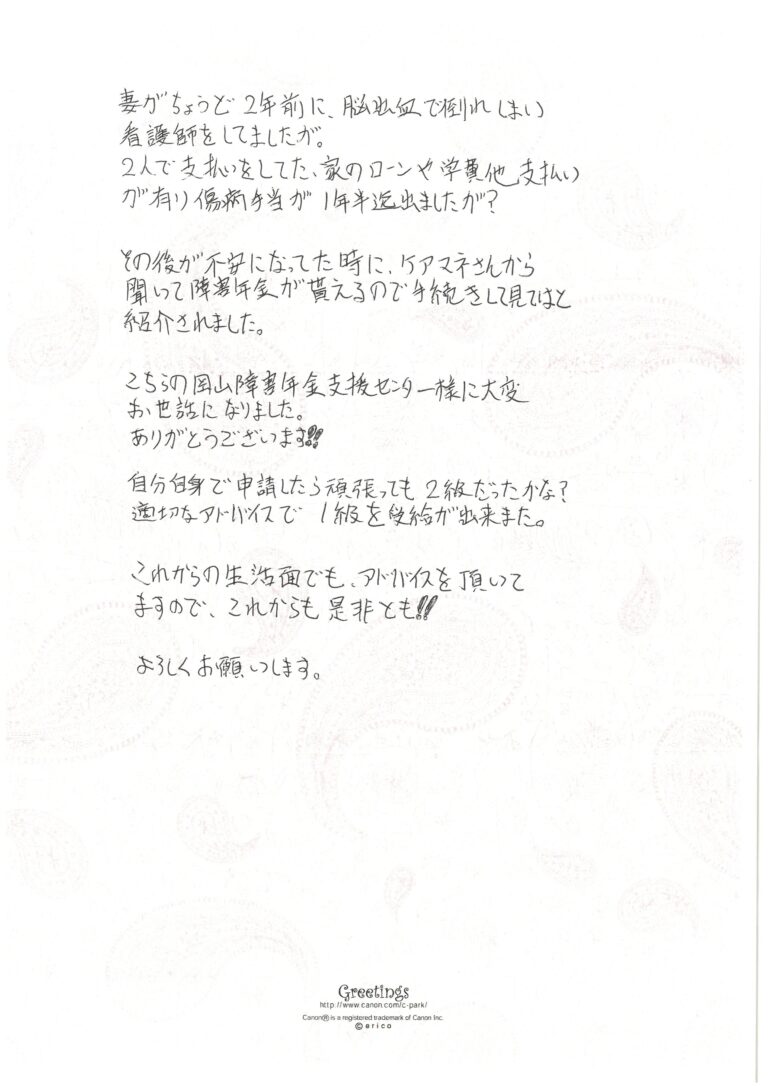 妻がちょうど2年前に、脳出血で倒れしまい
看護師をしてましたが。
2人で支払いをしてた、家のローンや学費他 支払い
が有り傷病手当が1年半迄出ましたが?
その後が不安になってた時に、ケアマネさんから
聞いて障害年金が貰えるので手続きして見てはと
紹介されました。
こちらの岡山障害年金支援センター様に大変
お世話になりました。
ありがとうございます!!
自分自身で申請したら頑張っても2級だったかな?
適切なアドバイスで1級を受給が出来また。
これからの生活面でも、アドバイスを頂いて
ますので、これからも是非とも!!
よろしくお願いします。
Greetings
http://www.canon.com/c-park/
Canon® is a registered trademark of Canon Inc.
© erico